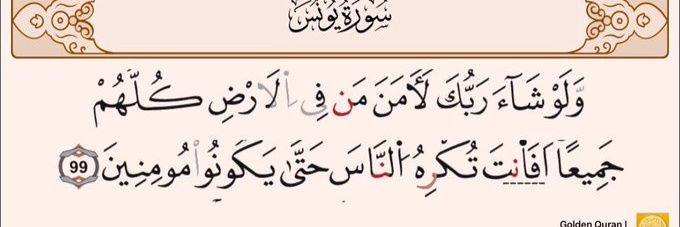 سُورَةُ يُونُسَ
وَّلَوْ شَآءَ رَبُّكَ لَأٓمَنَ مَن فِى اِ۬لَارْضِ كُلُّهُمْ
جَمِيعًا اَفَأَنتَ تُكْرِهُ اُ۬لنَّاسَ حَتَّىٰ يَكُونُواْ مُومِنِينَ 99
Golden Quran |